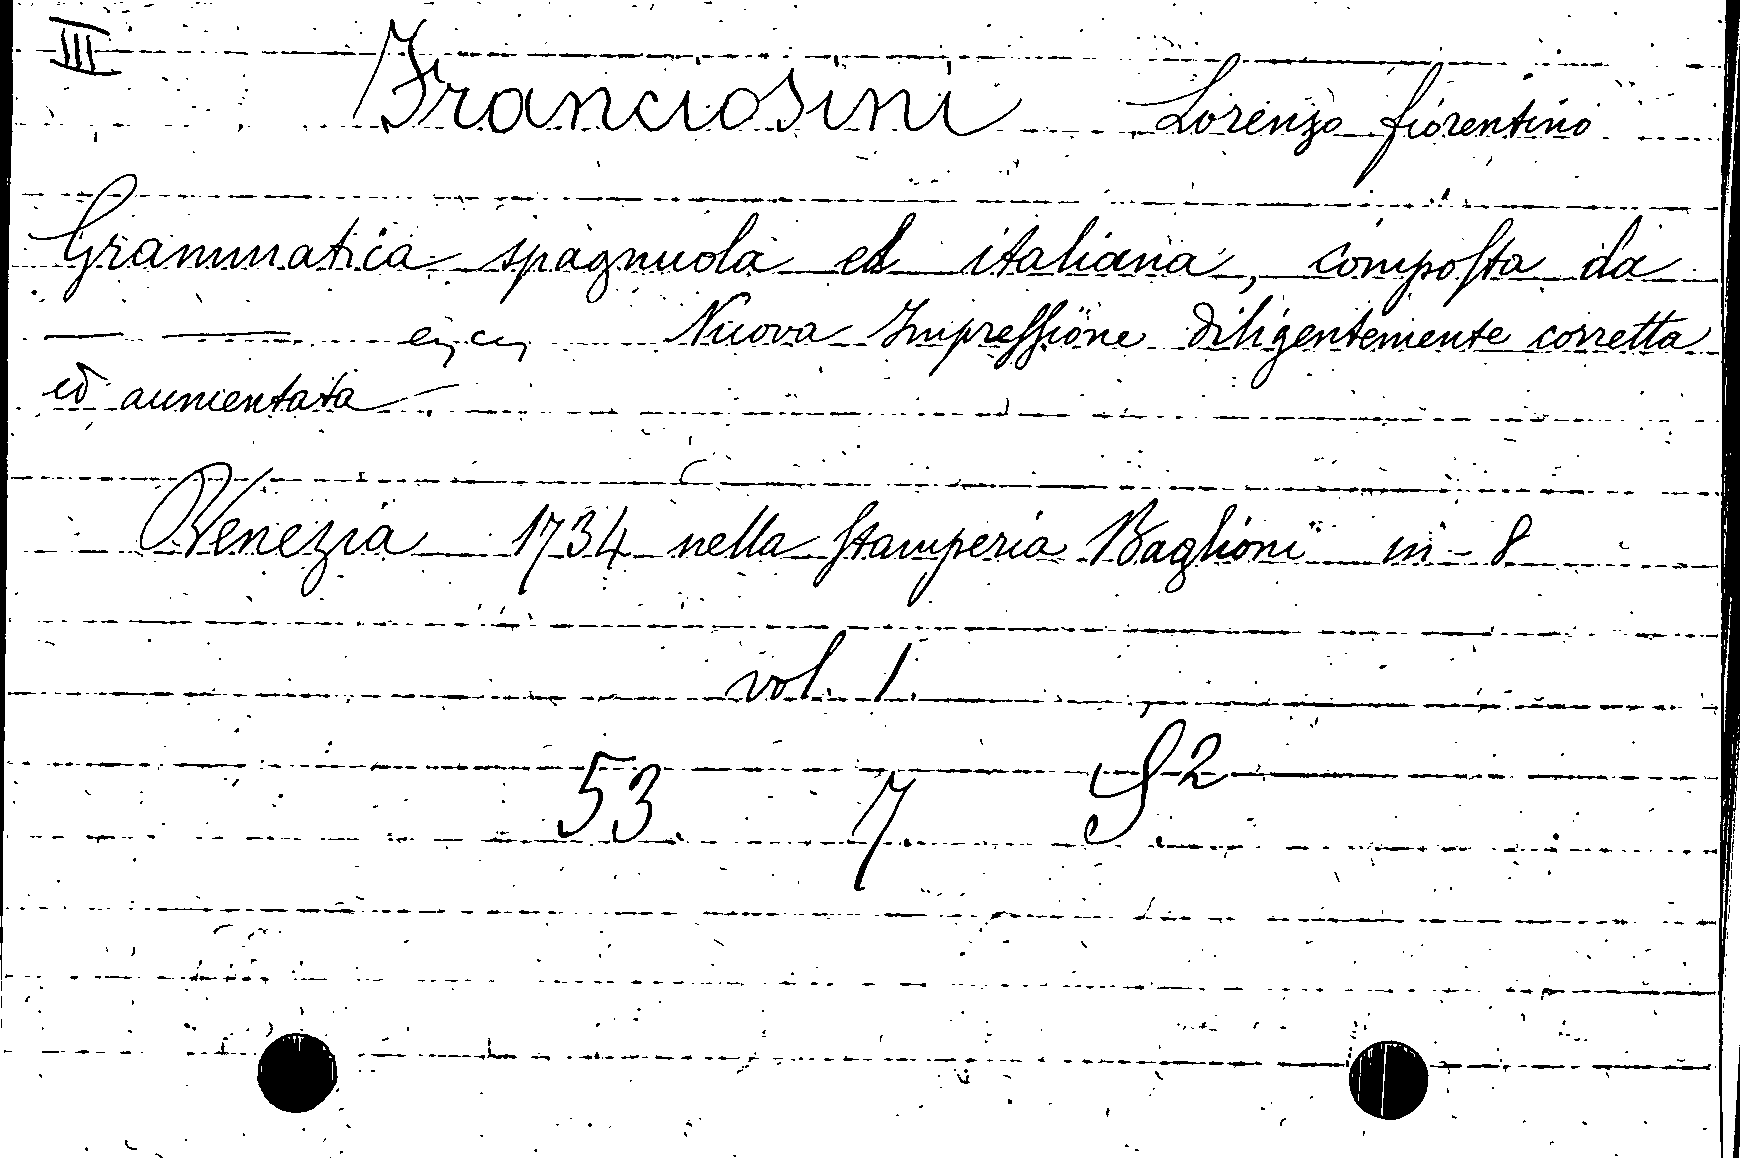 III
Franciosini Lorenzo fiorentino
Grammatica spagnuola ed italiana, compoſta da
— — Nuova Impreſſione diligentemente corretta
ed aumentata
Venezia 1734 nella ſtamperia Baglioni in-8
vol. 1.
53. 7. S²